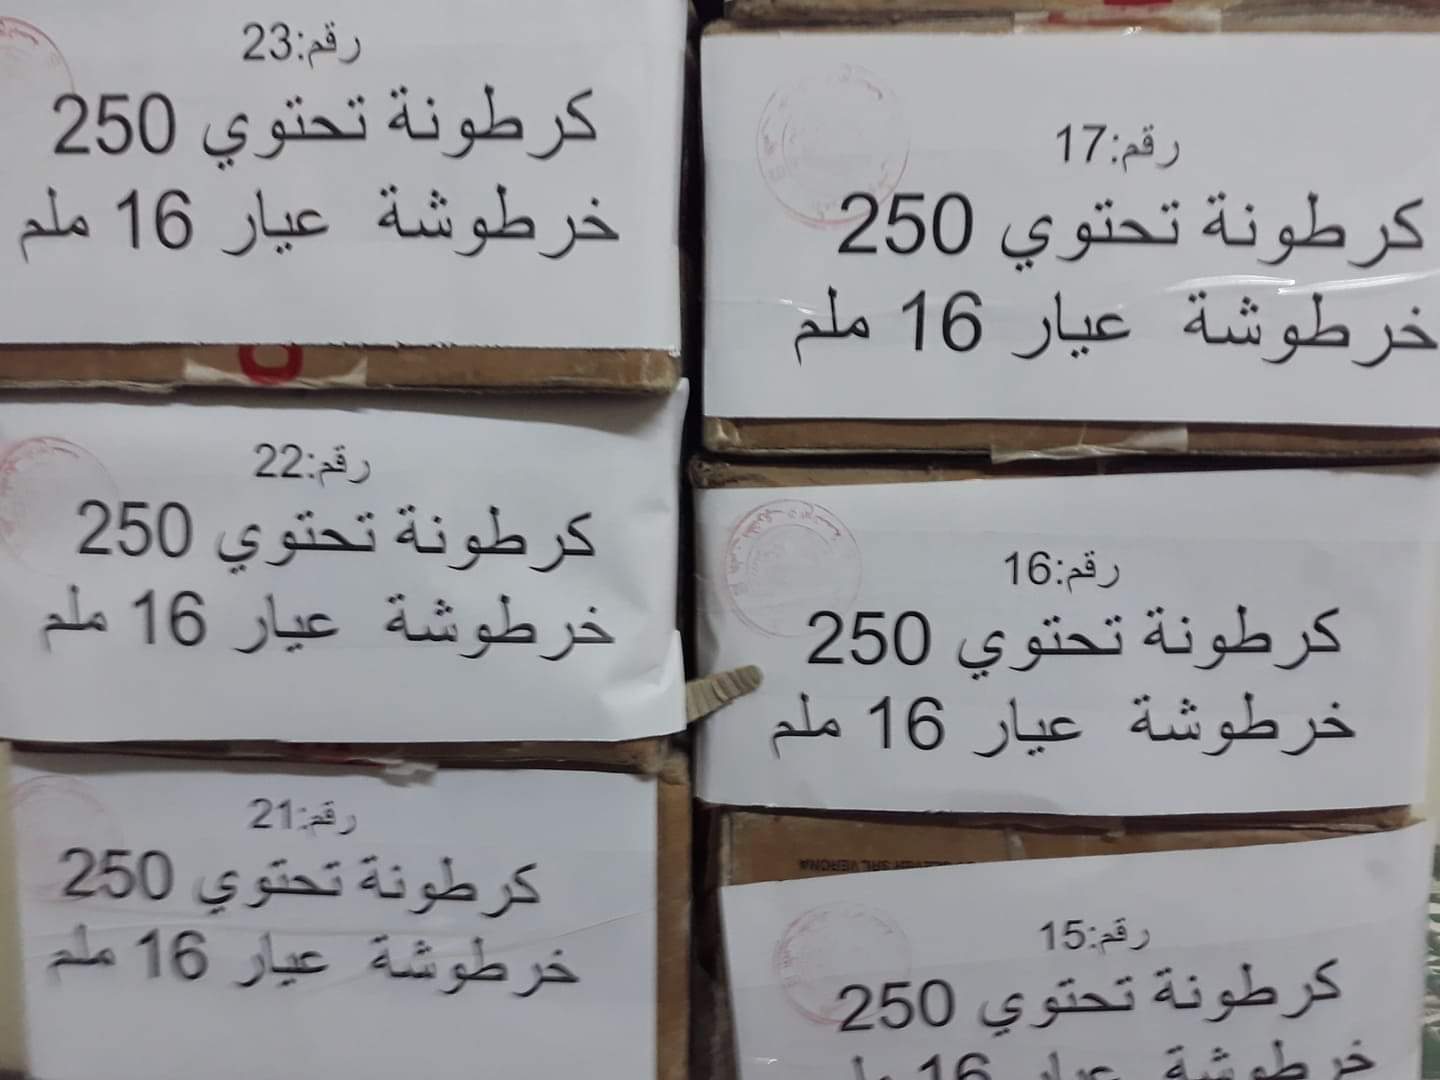 رقم:23
كرطونة تحتوي 250
خرطوشة عيار 16 ملم
رقم:17
كرطونة تحتوي 250
خرطوشة عيار 16 ملم
رقم:22
كرطونة تحتوي 250
خرطوشة عيار 16 ملم
رقم:16
كرطونة تحتوي 250
خرطوشة عيار 16 ملم
رقم:21
كرطونة تحتوي 250
خرطوشة عيار 16 ملم
SRL VERONA
رقم:15
كرطونة تحتوي 250
خرطوشة عيار 16